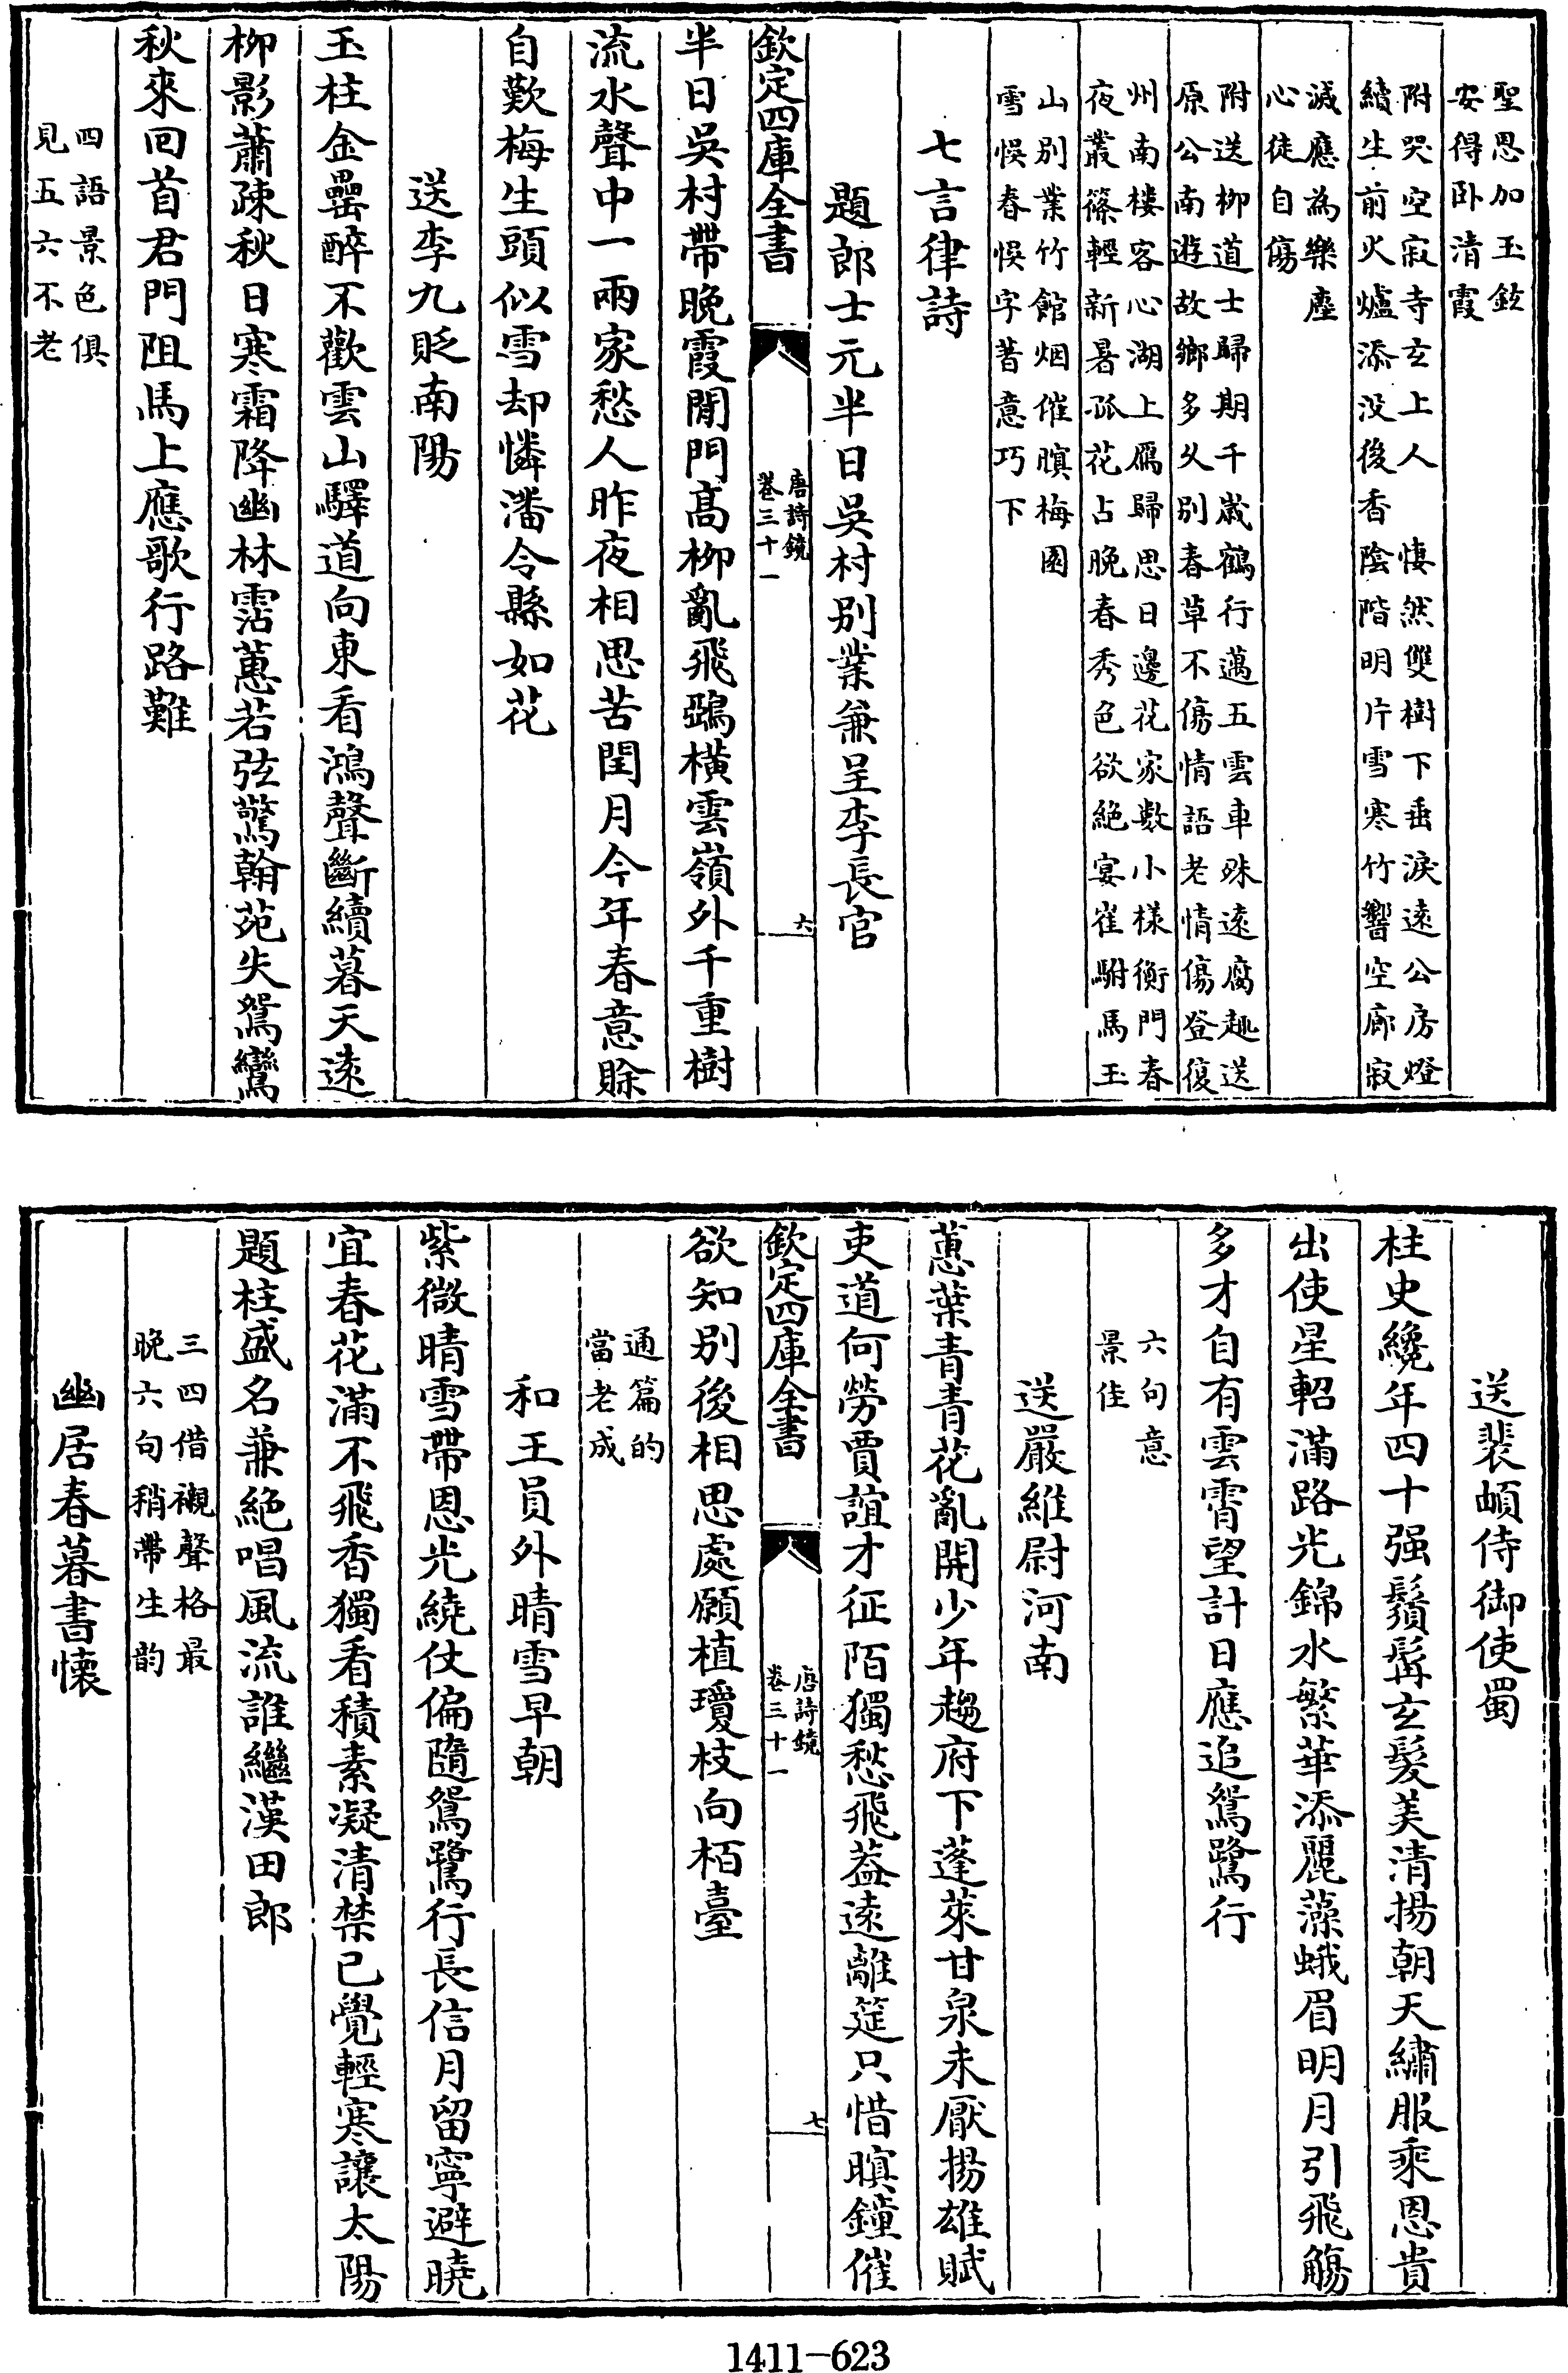 聖恩加玉鉉
安得卧清霞
附哭空寂寺玄上人　悽然雙樹下垂淚遠公房燈
續生前火爐添没後香陰階明片雪寒竹響空廊寂
滅應為樂塵
心徒自傷
附送柳道士歸期千歲鶴行邁五雲車殊遠腐趣送
原公南遊故鄉多久别春草不傷情語老情傷登復
州南樓客心湖上鴈歸思日邊花家數小樣衡門春
夜叢篠輕新暑孤花占晚春秀色欲絶宴崔駙馬玉
山别業竹館烟催暝梅園
雪悞春悞字苦意巧下
七言律詩
題郎士元半日吳村别業兼呈李長官
欽定四庫全書
唐詩鏡
卷三十一
六
半日吳村帶晚霞閒門髙柳亂飛鵶横雲嶺外千重樹
流水聲中一兩家愁人昨夜相思苦閏月今年春意賖
自歎梅生頭似雪却憐潘令縣如花
送李九貶南陽
玉柱金罍醉不歡雲山驛道向東看鴻聲斷續暮天遠
柳影蕭疎秋日寒霜降幽林霑蕙若弦驚翰苑失鴛鸞
秋來回首君門阻馬上應歌行路難
四語景色俱
見五六不老
送裴頔侍御使蜀
柱史纔年四十强鬚髯玄髮美清揚朝天繡服乘恩貴
出使星軺滿路光錦水繁華添麗藻蛾眉明月引飛觴
多才自有雲霄望計日應追鴛鷺行
六句意
景佳
送嚴維尉河南
蕙葉青青花亂開少年趨府下蓬萊甘泉未厭揚雄賦
吏道何勞賈誼才征陌獨愁飛葢遠離筵只惜暝鐘催
欽定四庫全書
唐詩鏡
卷三十一
七
欲知别後相思處願植瓊枝向栢臺
通篇的
當老成
和王員外晴雪早朝
紫微晴雪帶恩光繞仗偏隨鴛鷺行長信月留寧避曉
宜春花滿不飛香獨看積素凝清禁已覺輕寒讓太陽
題柱盛名兼絶唱風流誰繼漢田郎
三四借襯聲格最
晚六句稍帶生韵
幽居春暮書懷
1411-623